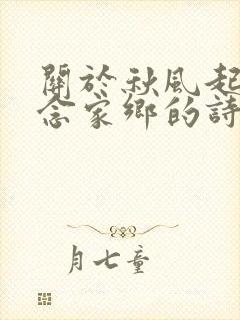 關於秋風起
念家鄉的詩
月七童